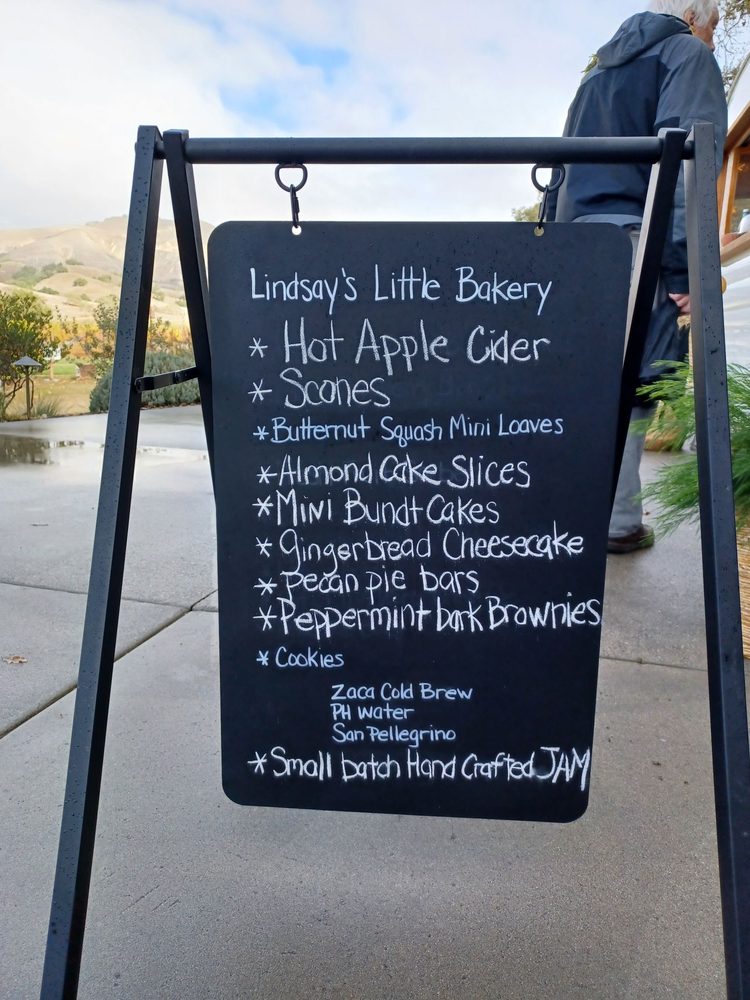 Lindsay's Little Bakery
* Hot Apple Cider
* Scones
* Butternut Squash Mini Loaves
* Almond Cake Slices
* Mini Bundt Cakes
* Gingerbread Cheesecake
* Pecan pie bars
* Peppermint bark Brownies
* Cookies
Zaca Cold Brew
PH Water
San Pellegrino
* Small batch Hand Crafted JAM